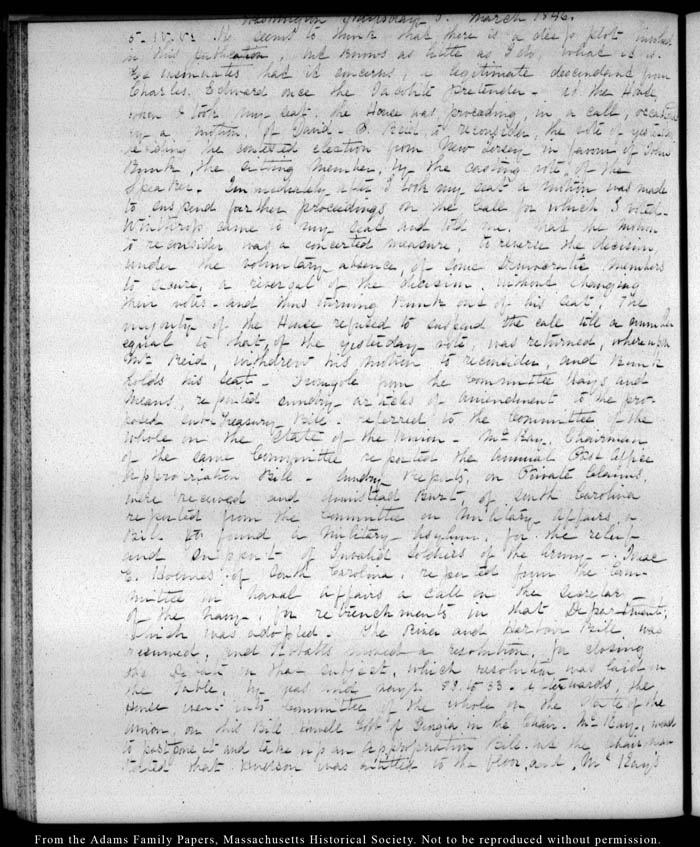 Washington Thursday 5. March 1846.
5. IV.V: He seems to think that there is a deep plot involved
in this publication, but knows as little as I do, what it is.
He insinuates that it concerns, a legitimate descendant from
Charles Edward once the Jacobite Pretender - At the House
when I took my seat, the House was proceeding, in a call, occasioned
by a motion, of David. S. Reid to reconsider, the vote of yesterday
the contested election from New Jersey in favour of John
Runk, the sitting member, by the casting vote of the
Speaker. Immediately after I took my seat a motion was made
to suspend further proceedings on the Call for which I voted.
Winthrop came to my seat and told me, that the motion
to reconsider was a concerted measure, to reverse the decision
under the voluntary absence, of some Democratic, members
to secure, a reversal of the decision, without changing
their votes - and thus turning Runk out of his seat. The
majority of the House refused to suspend the call till a number
equal to that, of the yesterday vote, was returned, whereupon
Mr Reid, withdrew his motion to reconsider, and Runk
holds his seat - Dromgoole from the Committee Ways and
Means, reported sundry articles of amendment to the pro-
posed Sub-Treasury Bill. referred, to the Committee of the
Whole on the State of the Union - McKay, Chairman
of the same Committee reported the Annual Post Office
Appropriation Bill - Sundry Reports, on Private Claims,
were received and Armistead Burt, of South Carolina
reported from the Committee on Military Affairs, a
Bill to found a Military Asylum, for the relief
and support of Invalid Soldiers of the Army - Isaac
E. Holmes of South Carolina, reported from the Com-
mittee on Naval Affairs a call on the Secretary
of the Navy, for retrenchments in that Department;
which was adopted - The River and Harbour Bill was
resumed, and moved a resolution, for closing
the Debate on that subject, which resolution was laid on
the table, by yeas and nays 88. to 33 - afterwards, the
House went into Committee of the whole on the State of the
Union, on this Bill Howell Cobb of Georgia in the Chair. McKay, moved
to postpone it and take up an Appropriation Bill. but the Chairman
stated that was entitled to the floor, and, McKay's
From the Adams Family Papers, Massachusetts Historical Society. Not to be reproduced without permission.